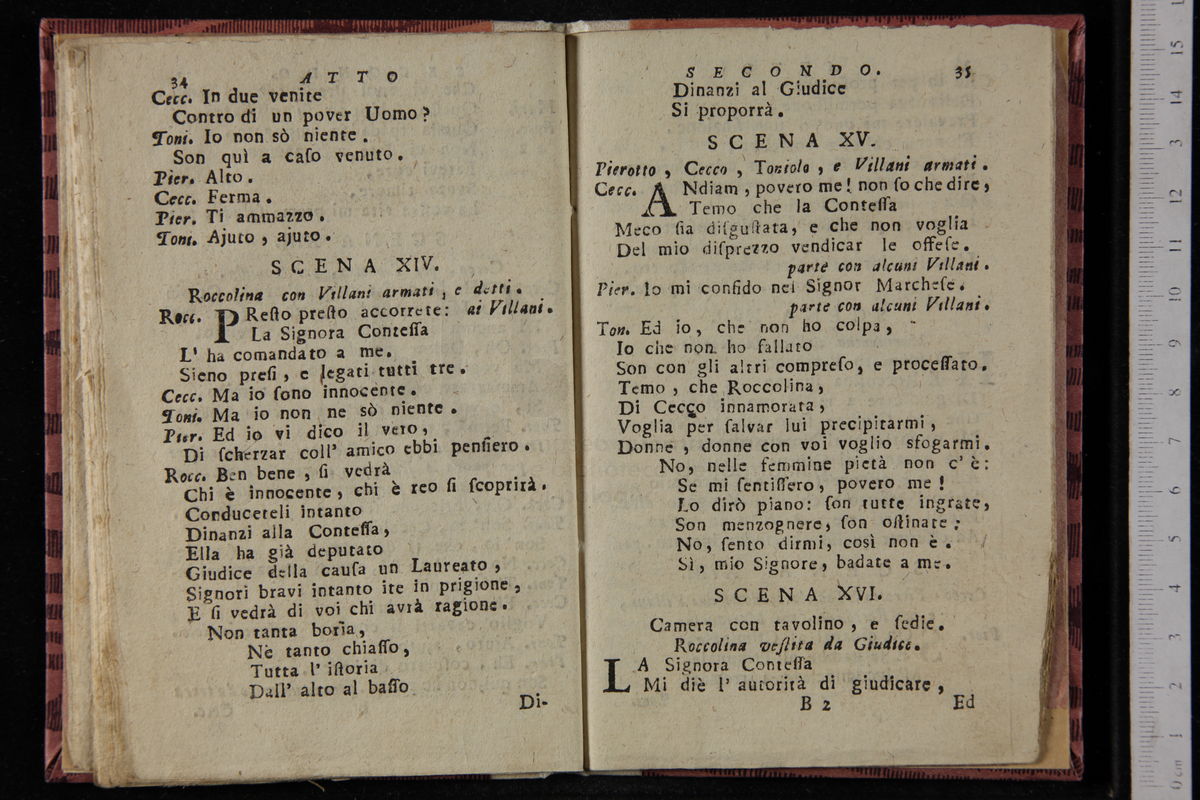 34 ATTO
Cecc. In due venite
Contro di un pover Uomo?
Toni. Io non sò niente.
Son quì a caſo venuto.
Pier. Alto.
Cecc. Ferma.
Pier. Ti ammazzo.
Toni. Ajuto, ajuto.
SCENA XIV.
Roccolina con Villani armati, e detti.
Rocc. PReſto preſto accorrete: ai Villani.
La Signora Conteſſa
L' ha comandato a me.
Sieno preſi, e legati tutti tre.
Cecc. Ma io ſono innocente.
Toni. Ma io non ne sò niente.
Pier. Ed io vi dico il vero,
Di ſcherzar coll' amico ebbi penſiero.
Rocc. Ben bene, ſi vedrà
Chi è innocente, chi è reo ſi ſcoprirà.
Conduceteli intanto
Dinanzi alla Conteſſa,
Ella ha già deputato
Giudice della cauſa un Laureato,
Signori bravi intanto ite in prigione,
E ſi vedrà di voi chi avrà ragione.
Non tanta boria,
Nè tanto chiaſſo,
Tutta l' iſtoria
Dall' alto al baſſo
Di-
SECONDO. 35
Dinanzi al Giudice
Si proporrà.
SCENA XV.
Pierotto, Cecco, Toniolo, e Villani armati.
Cecc. ANdiam, povero me! non ſo che dire,
Temo che la Conteſſa
Meco ſia diſguſtata, e che non voglia
Del mio diſprezzo vendicar le offeſe.
parte con alcuni Villani.
Pier. Io mi confido nel Signor Marcheſe.
parte con alcuni Villani.
Ton. Ed io, che non ho colpa,
Io che non ho fallato
Son con gli altri compreſo, e proceſſato.
Temo, che Roccolina,
Di Cecco innamorata,
Voglia per ſalvar lui precipitarmi,
Donne, donne con voi voglio sfogarmi.
No, nelle femmine pietà non c' è:
Se mi ſentiſſero, povero me!
Lo dirò piano: ſon tutte ingrate,
Son menzognere, ſon oſtinate;
No, ſento dirmi, così non è.
Sì, mio Signore, badate a me.
SCENA XVI.
Camera con tavolino, e ſedie.
Roccolina veſtita da Giudice.
LA Signora Conteſſa
Mi diè l' autorità di giudicare,
B 2 Ed
0 cm 1 2 3 4 5 6 7 8 9 10 11 12 13 14 15